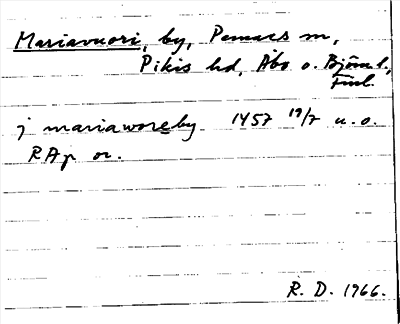 Mariavuori, by, Pemars sn,
Pikis hd, Åbo o. Björneb. l.,
Finl.
j mariaworeby 1457 19/7 u. o.
RAp or.
R. D. 1966.